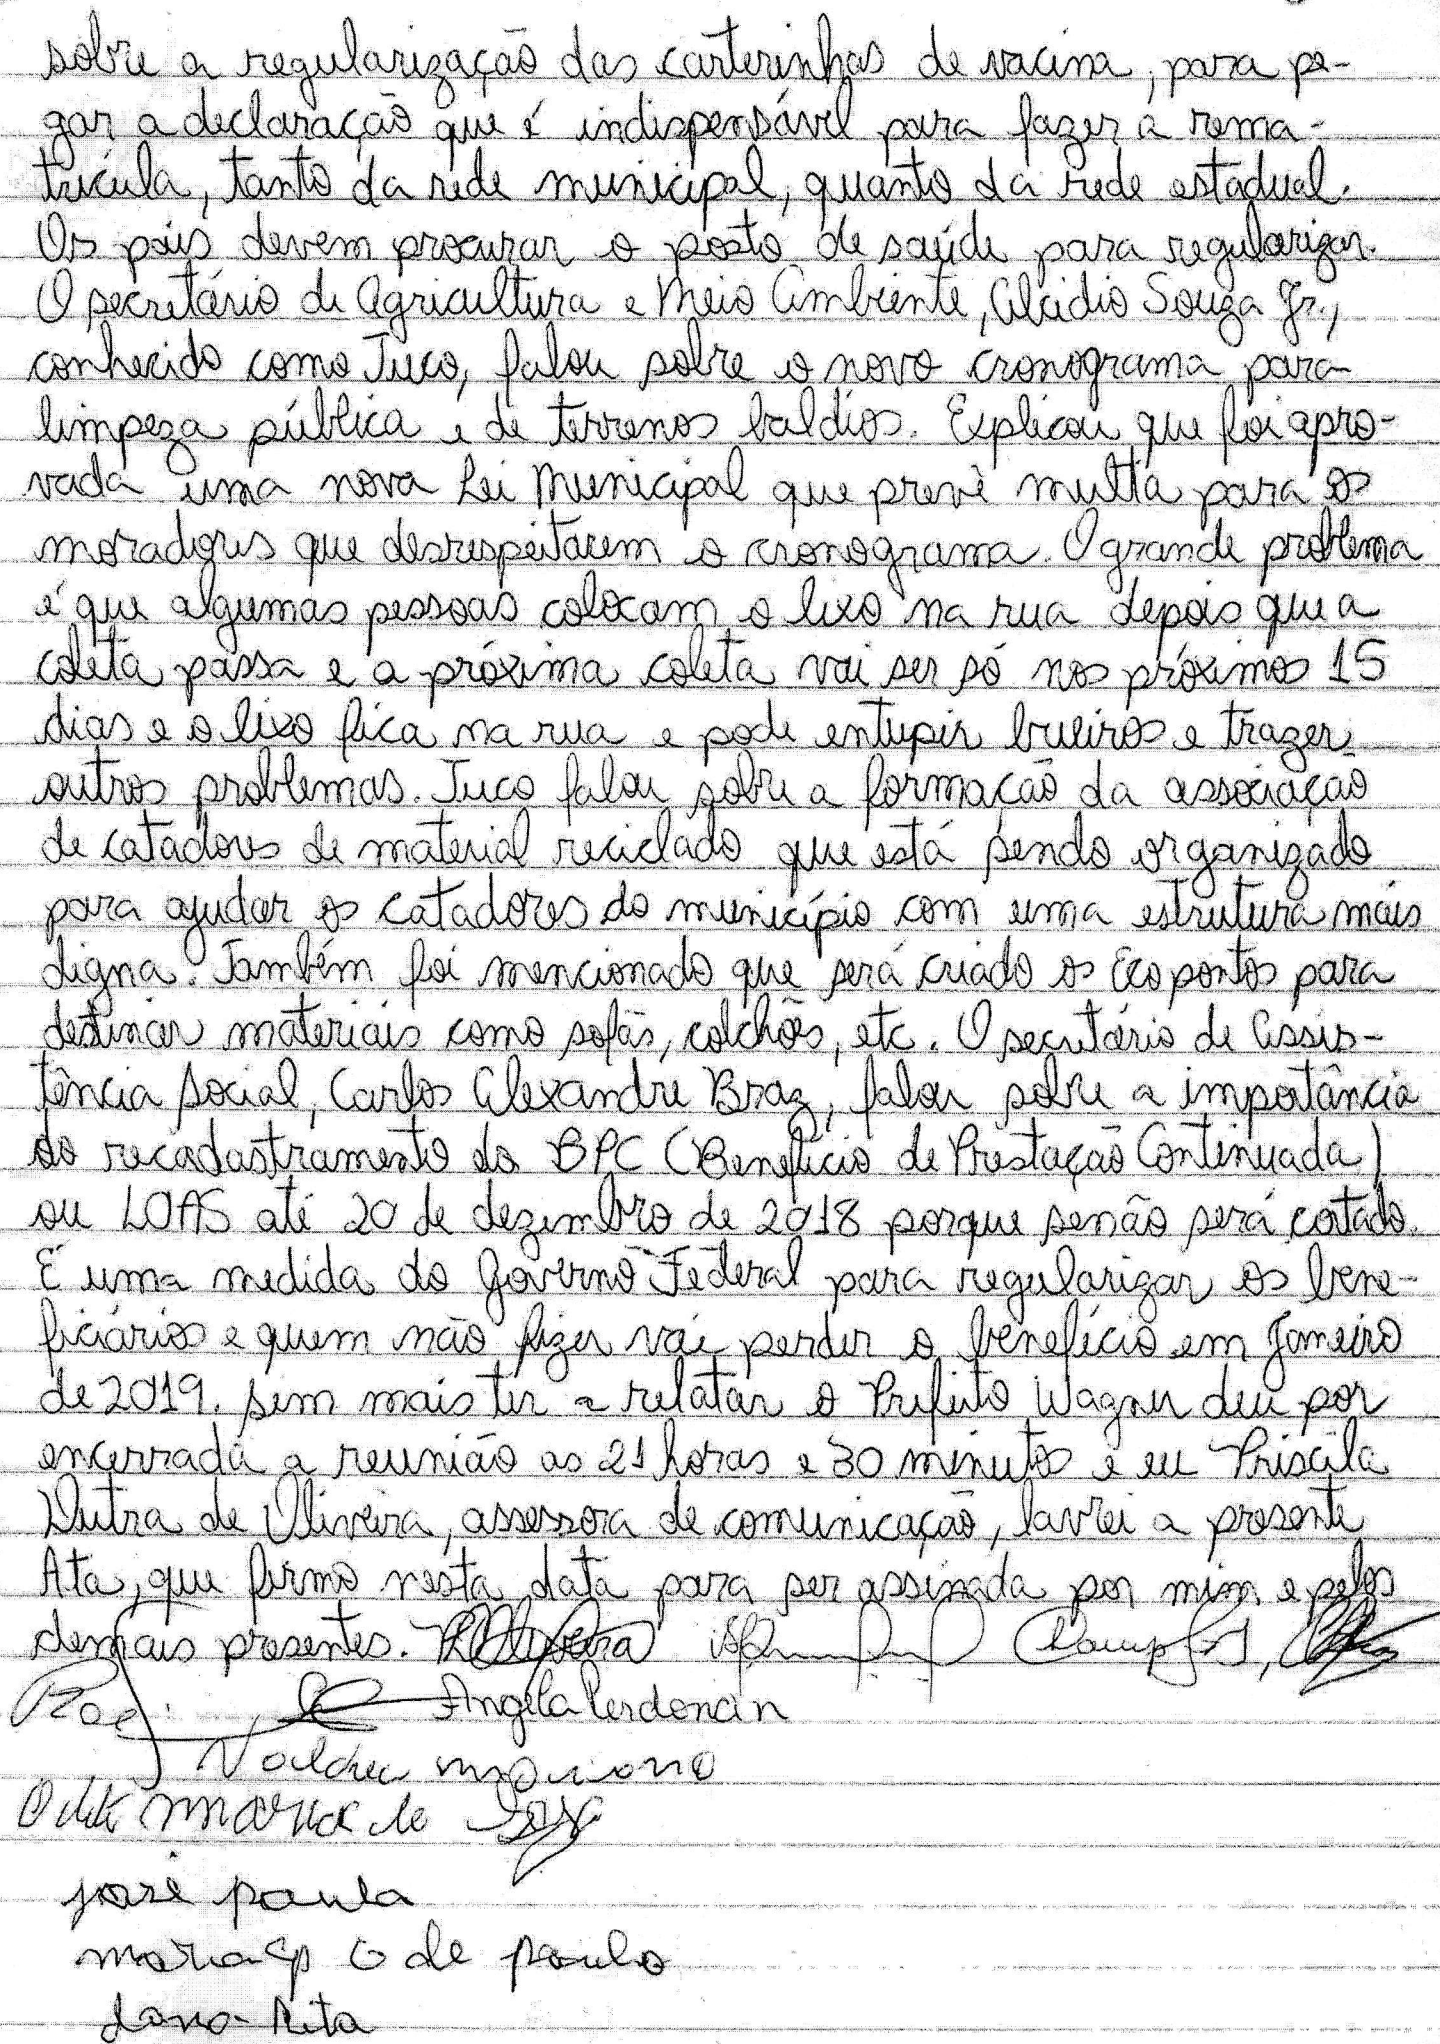 sobre a regularização das carterinhas de vacina, para pe-
gar a declaração que é indispensável para fazer a rema-
trícula, tanto da rede municipal, quanto da rede estadual.
Os pais devem procurar o posto de saúde para regularizar.
O secretário de Agricultura e Meio Ambiente, Alcidio Souza Jr.,
conhecido como Juco, falou sobre o novo cronograma para
limpeza pública e de terrenos baldios. Explicou que foi apro-
vada uma nova Lei Municipal que prevê multa para os
moradores que desrespeitarem o cronograma. O grande problema
é que algumas pessoas colocam o lixo na rua depois que a
coleta passa e a próxima coleta vai ser só nos próximos 15
dias e o lixo fica na rua e pode entupir bueiros e trazer
outros problemas. Juco falou sobre a formação da associação
de catadores de material reciclado que está sendo organizado
para ajudar os catadores do município com uma estrutura mais
digna. Também foi mencionado que será criado os Ecopontos para
destinar materiais como sofás, colchões, etc. O secretário de Assis-
tência Social, Carlos Alexandre Braz, falou sobre a importância
do recadastramento do BPC (Benefício de Prestação Continuada)
ou LOAS até 20 de dezembro de 2018 porque senão será cortado.
É uma medida do Governo Federal para regularizar os bene-
ficiários e quem não fizer vai perder o benefício em Janeiro
de 2019. Sem mais ter a relatar o Prefeito Wagner deu por
encerrada a reunião as 21 horas e 30 minutos e eu Priscila
Dutra de Oliveira, assessora de comunicação, lavrei a presente
Ata, que firmo nesta data para ser assinada por mim e pelos
demais presentes. POliveira
Angela Perdoncin
Odete Maria de
josé paula
maria Ap O de paula
Rita